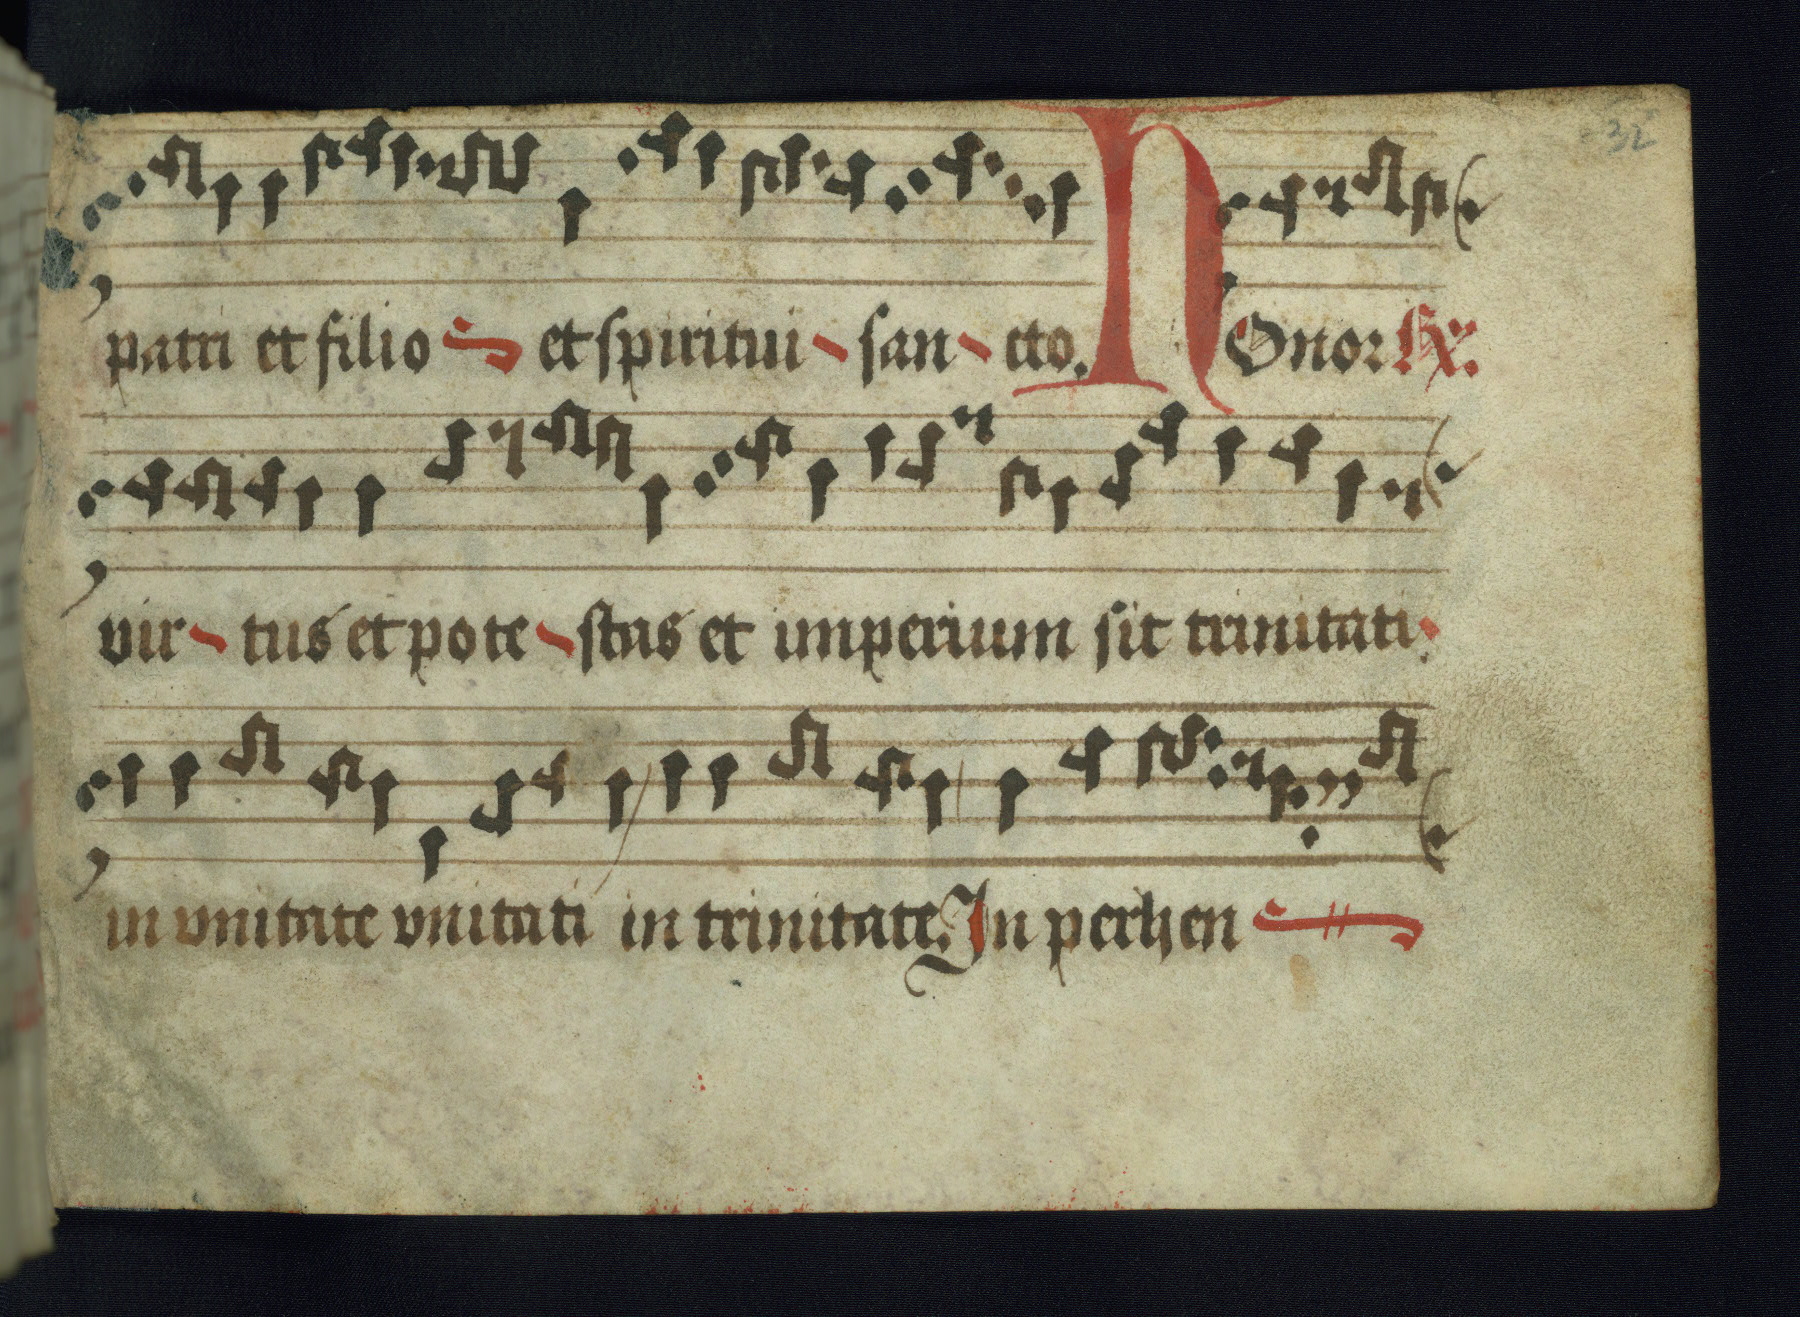 32
patri et filio et spiritui san cto. Honor Rx.
vir tus et pote stas et imperium sit trinitati
in vnitate vnitati in trinitate. In perhen